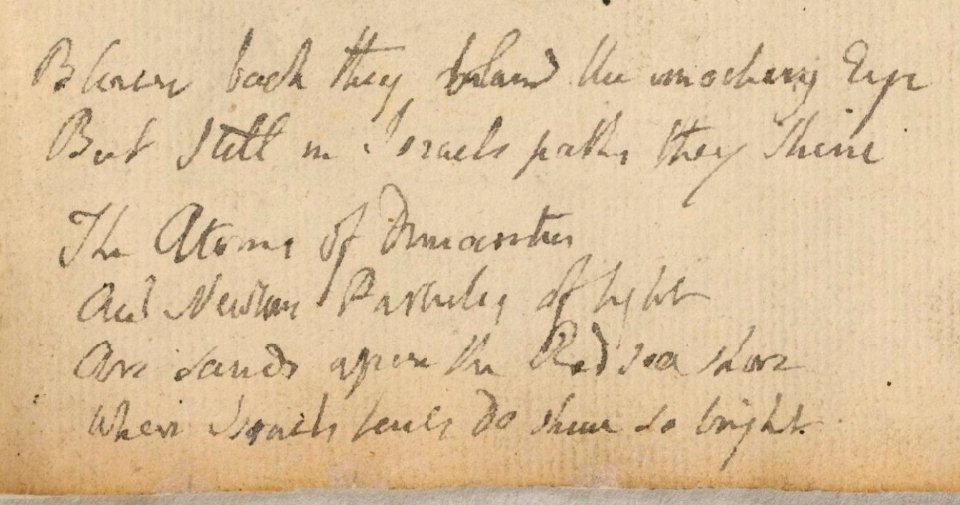 Blown back they blind the mocking Eye
But still in Israels paths they shine
The Atoms of Democritus
And Newtons Particles of light
Are sands upon the Red sea shore
Where Israels tents do shine so bright.